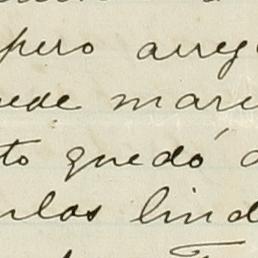 pero arreg
ede mar
to quedó
las lind